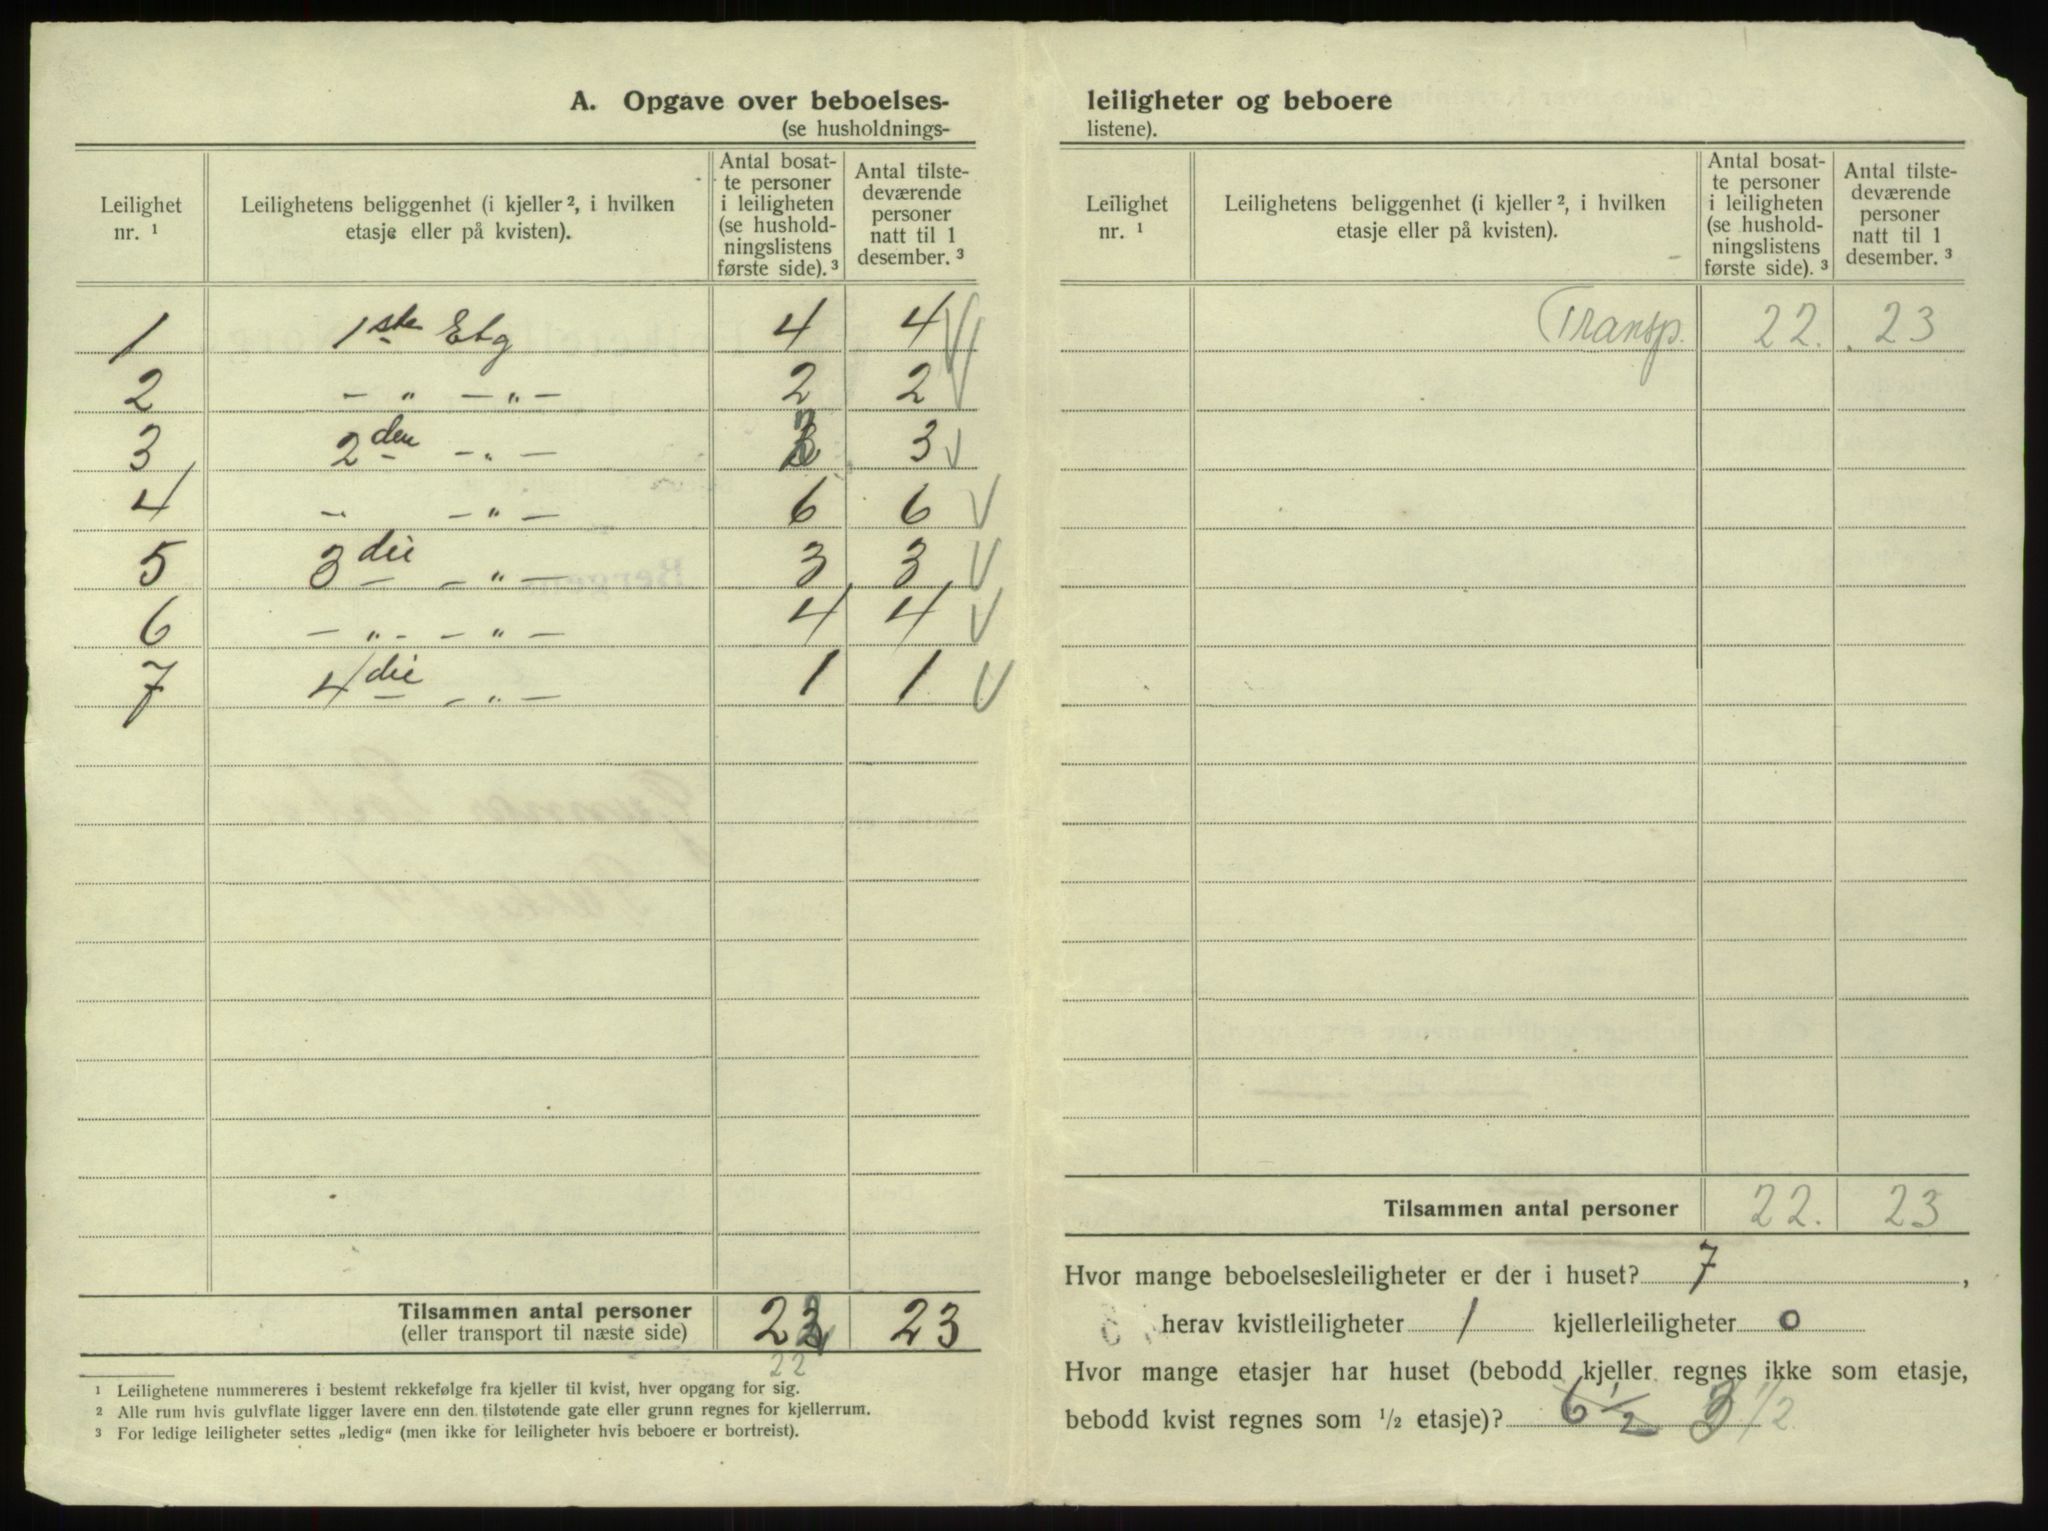 A. Opgave over beboelses-
(se husholdnings-
Leilighet nr. ¹
Leilighetens beliggenhet (i kjeller ², i hvilken etasje eller på kvisten).
Antal bosat-
te personer
i leiligheten
(se hushold-
ningslistens
første side). ³
Antal tilste-
deværende
personer
natt til 1
desember. ³
1 1ste Etg 4 4
2 — „ — „ — 2 2
3 2den — „ — 2 3
4 — — „ — 6 6
5 3die — „ — 3 3
6 — „ — — „ — 4 4
7 4die — „ — 1 1
Tilsammen antal personer 22 23
(eller transport til næste side)
22
¹ Leilighetene nummereres i bestemt rekkefølge fra kjeller til kvist, hver opgang for sig.
² Alle rum hvis gulvflate ligger lavere enn den tilstøtende gate eller grunn regnes for kjellerrum.
³ For ledige leiligheter settes „ledig“ (men ikke for leiligheter hvis beboere er bortreist).
leiligheter og beboere
listene).
Leilighet nr. ¹
Leilighetens beliggenhet (i kjeller ², i hvilken etasje eller på kvisten).
Antal bosat-
te personer
i leiligheten
(se hushold-
ningslistens
første side). ³
Antal tilste-
deværende
personer
natt til 1
desember. ³
Transp. 22. 23
Tilsammen antal personer 22. 23
Hvor mange beboelsesleiligheter er der i huset? 7,
herav kvistleiligheter 1 kjellerleiligheter 0
Hvor mange etasjer har huset (bebodd kjeller regnes ikke som etasje,
bebodd kvist regnes som ½ etasje)? 6 ½ 3 1/2.